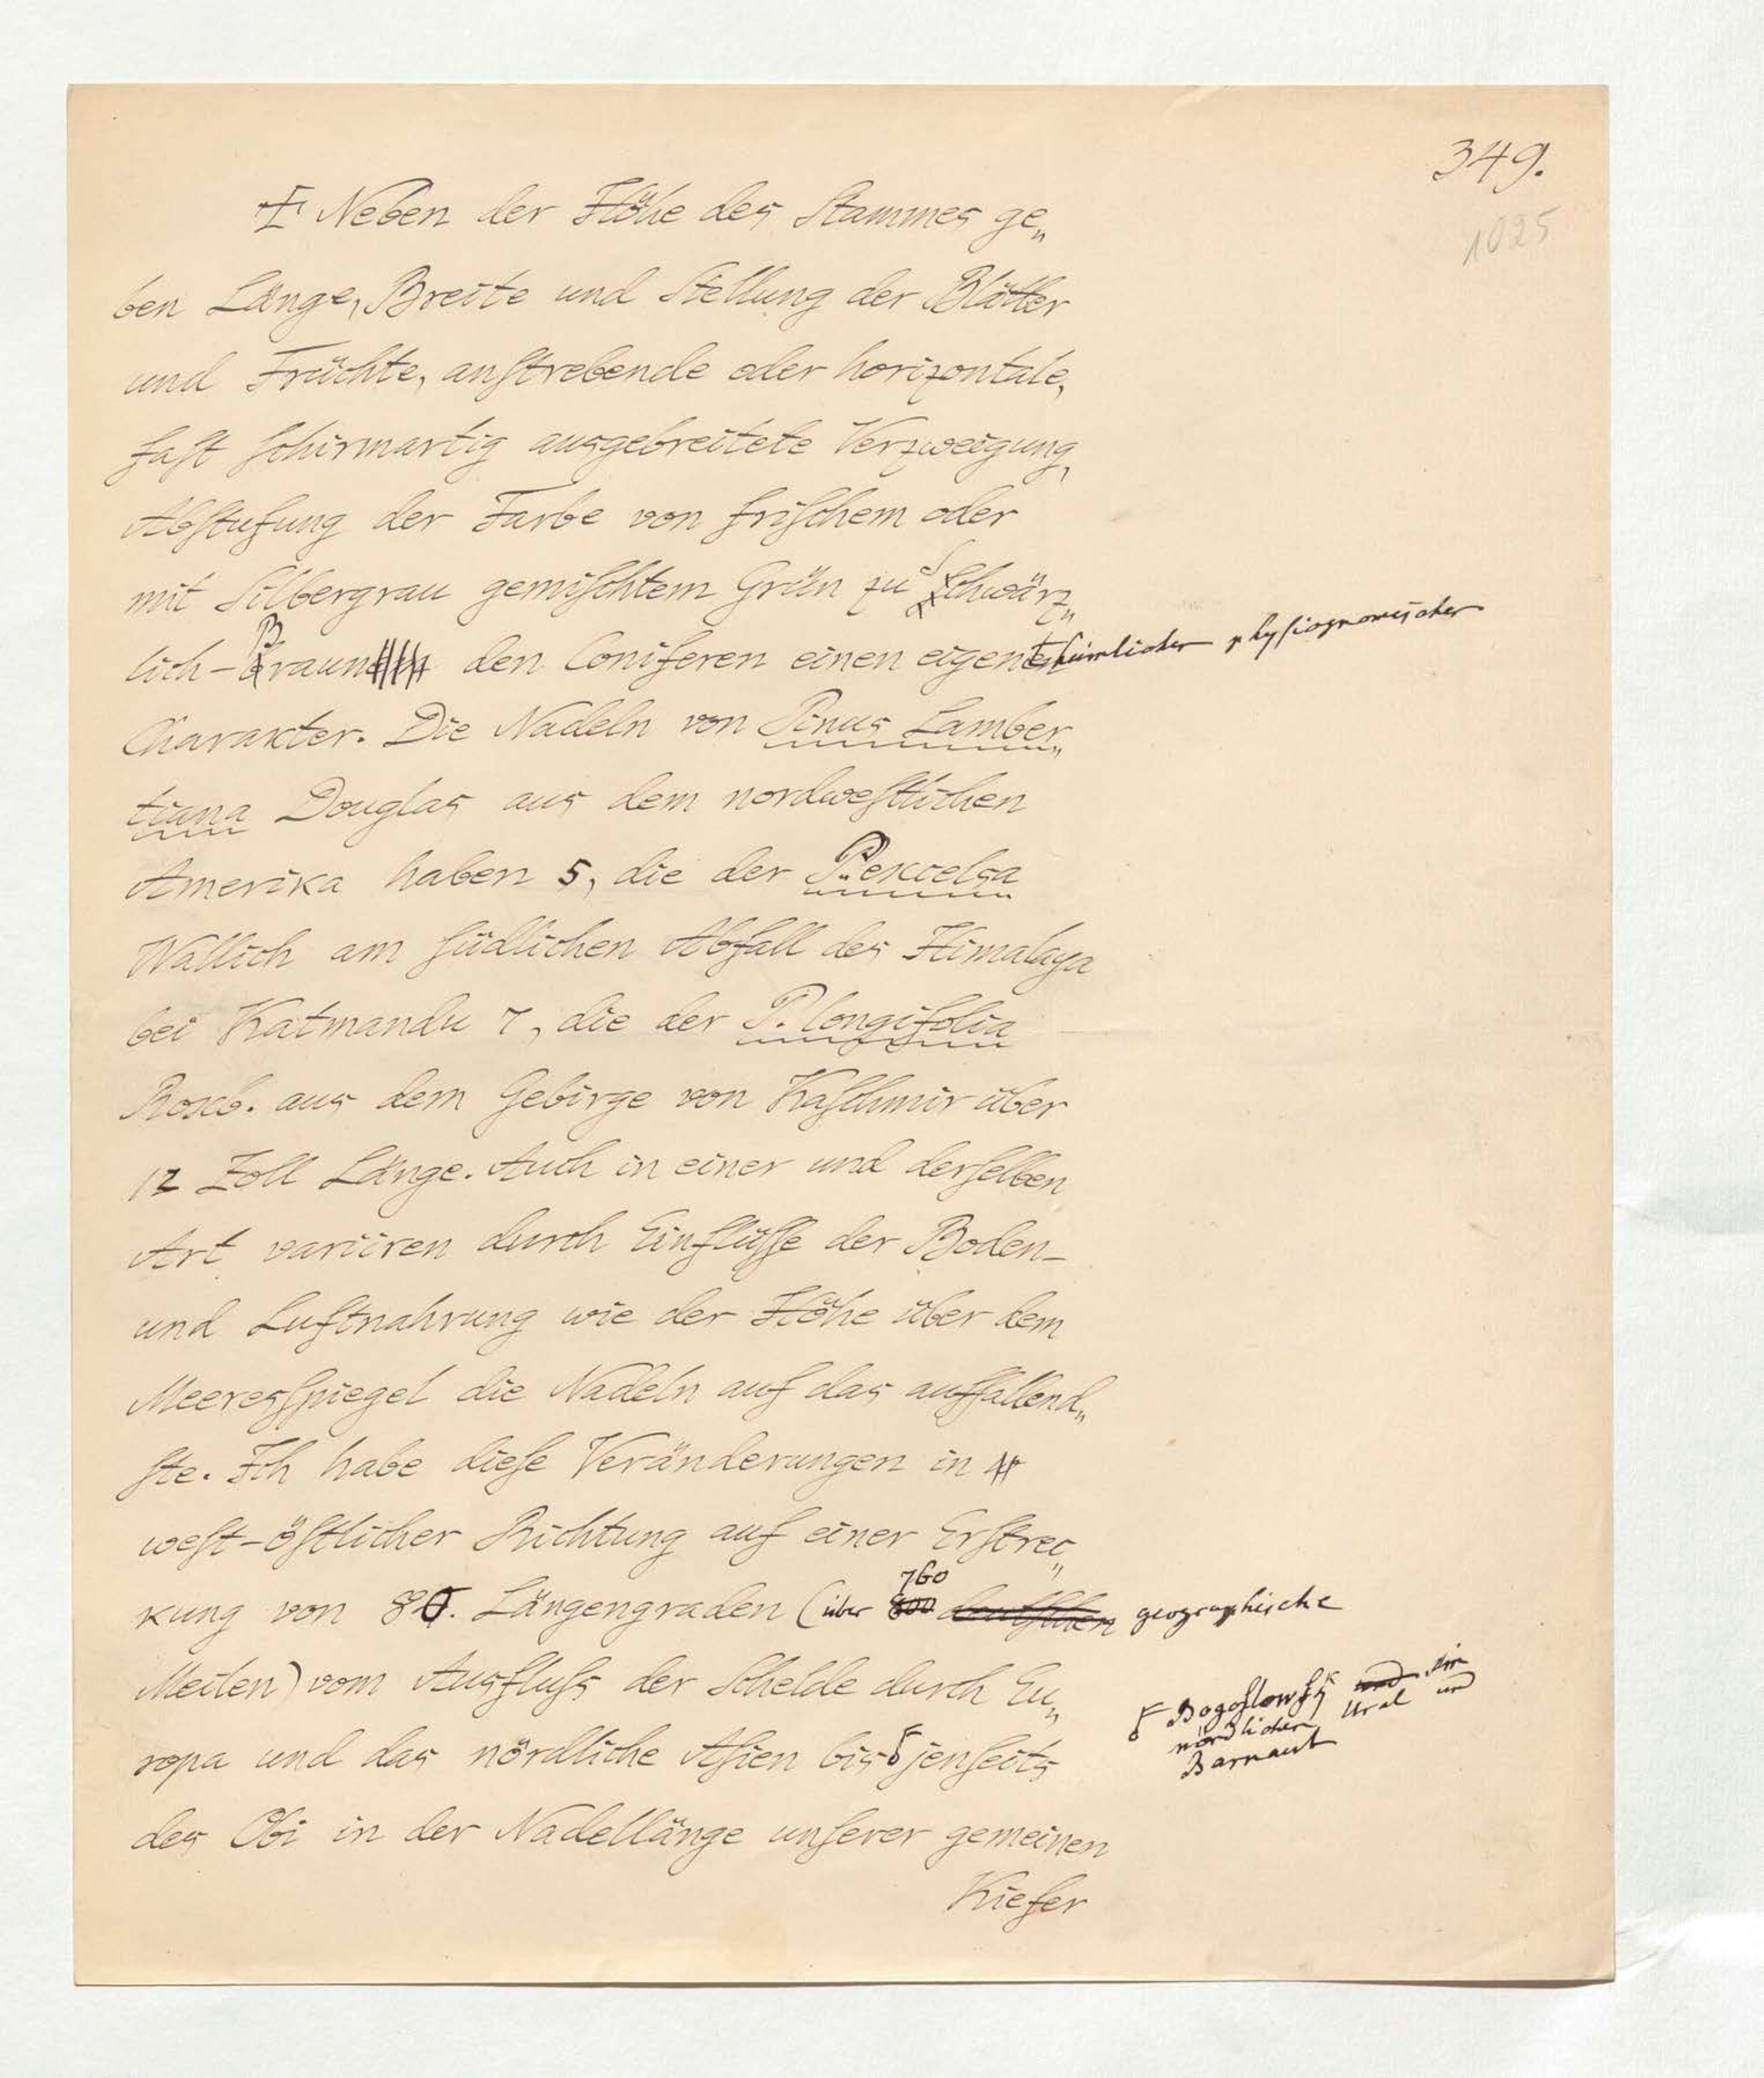 349.
1025
Neben der Höhe des Stammes ge„
ben Länge, Breite und Stellung der Blätter
und Früchte, anſtrebende oder horizontale,
faſt ſchirmartig ausgebreitete Verzweigung,
Abſtufung der Farbe von friſchem oder
mit Silbergrau gemiſchtem Grün zu Schwärz„
lich-Braun den Coniferen einen eigenthümlichen physiognomischen
Charakter. Die Nadeln von Pinus Lamber„
tiana Douglas aus dem nordweſtlichen
Amerika haben 5, die der P. excelsa
Wallich am ſüdlichen Abfall des Himalaya
bei Katmandu 7, die der P. longifolia
Roxb. aus dem Gebirge von Kaſchmir über
12 Zoll Länge. Auch in einer und derſelben
Art variiren durch Einflüſſe der Boden-
und Luftnahrung wie der Höhe über dem
Meeresſpiegel die Nadeln auf das auffallend„
ſte. Ich habe dieſe Veränderungen in
weſt-öſtlicher Richtung auf einer Erſtrec„
kung von 80. Längengraden (über 760 geographische
Meilen) vom Ausfluſs der Schelde durch Eu„
ropa und das nördliche Aſien bis jenſeits
Bogoſlowſk im
nördlichen Ural und
Barnaul
des Obi in der Nadellänge unſerer gemeinen
Kiefer